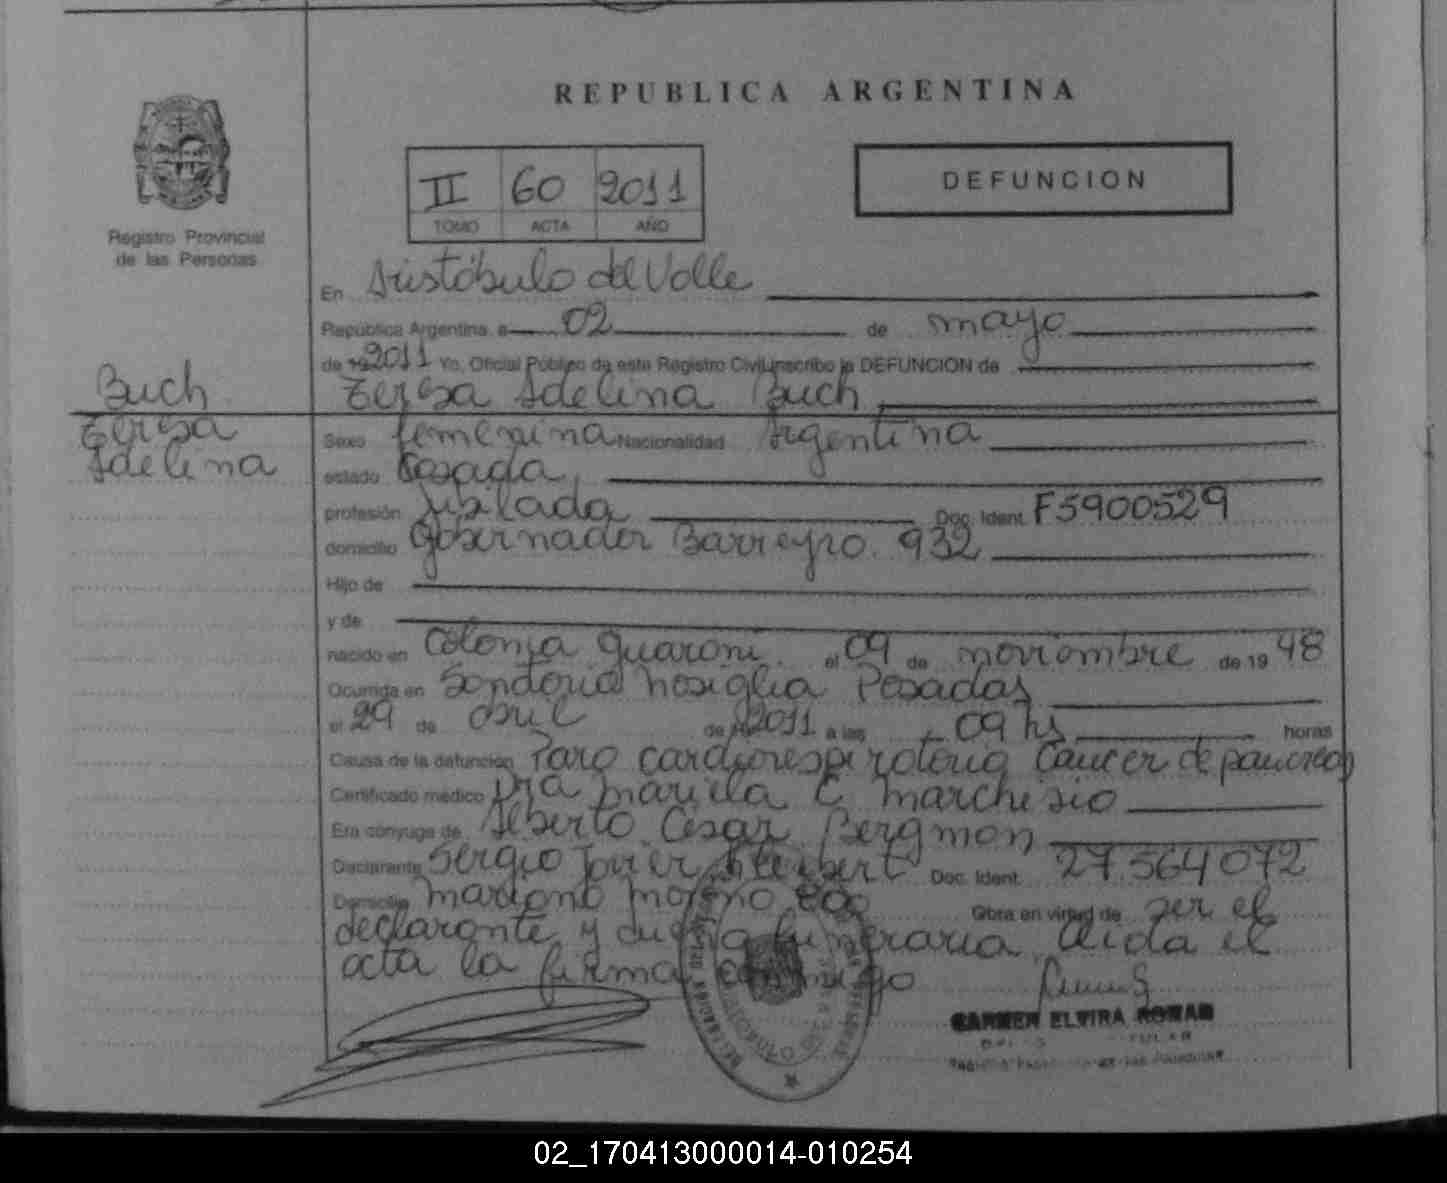 REPUBLICA ARGENTINA
II 60 2011
TOMO ACTA AÑO
DEFUNCION
Registro Provincial
de las Personas
Buch
Teresa
Adelina
En Aristóbulo del Valle
República Argentina a 02 de mayo
de 2011 Yo, Oficial Público de este Registro Civil inscribo la DEFUNCION de
Teresa Adelina Buch
Sexo femenina Nacionalidad Argentina
estado Casada
profesión Jubilada Doc. Ident. F5900529
domicilio Gobernador Barreyro 932
Hijo de
y de
nacido en Colonia Guaraní el 09 de noviembre de 19 48
Ocurrida en Sanatorio Nosiglia Posadas
el 29 de abril de 2011 a las 09 hs horas
Causa de la defunción Paro cardiorespiratorio Cáncer de páncreas
Certificado médico Dra Mariela C Marchesio
Era cónyuge de Alberto Cesar Bergman
Declarante Sergio Javier Doc. Ident. 27.564.072
Domicilio Mariano Moreno Obra en virtud de ser el
declarante y funeraria Leida el
acta la firma conmigo
CARMEN ELVIRA ROMAN
02_170413000014-010254